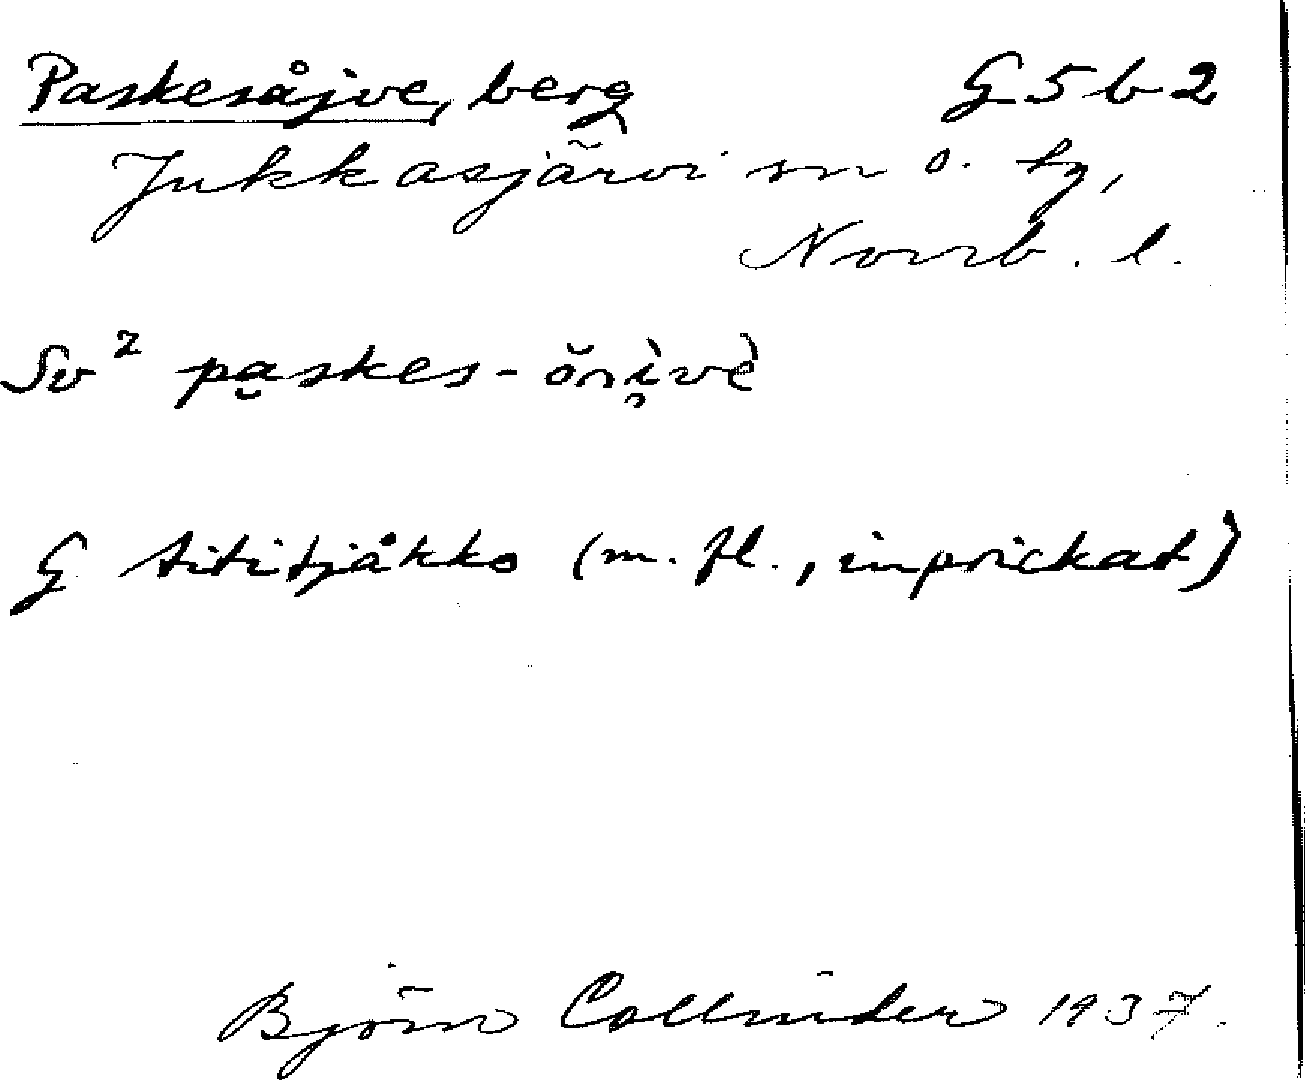 Paskesåjve, berg G5b2
Jukkasjärvi sn o. tg,
Norrb. l.
Sv² pa̮skes-
G tititjåkko (m. fl., inprickat)
Björn Collinder 1937.